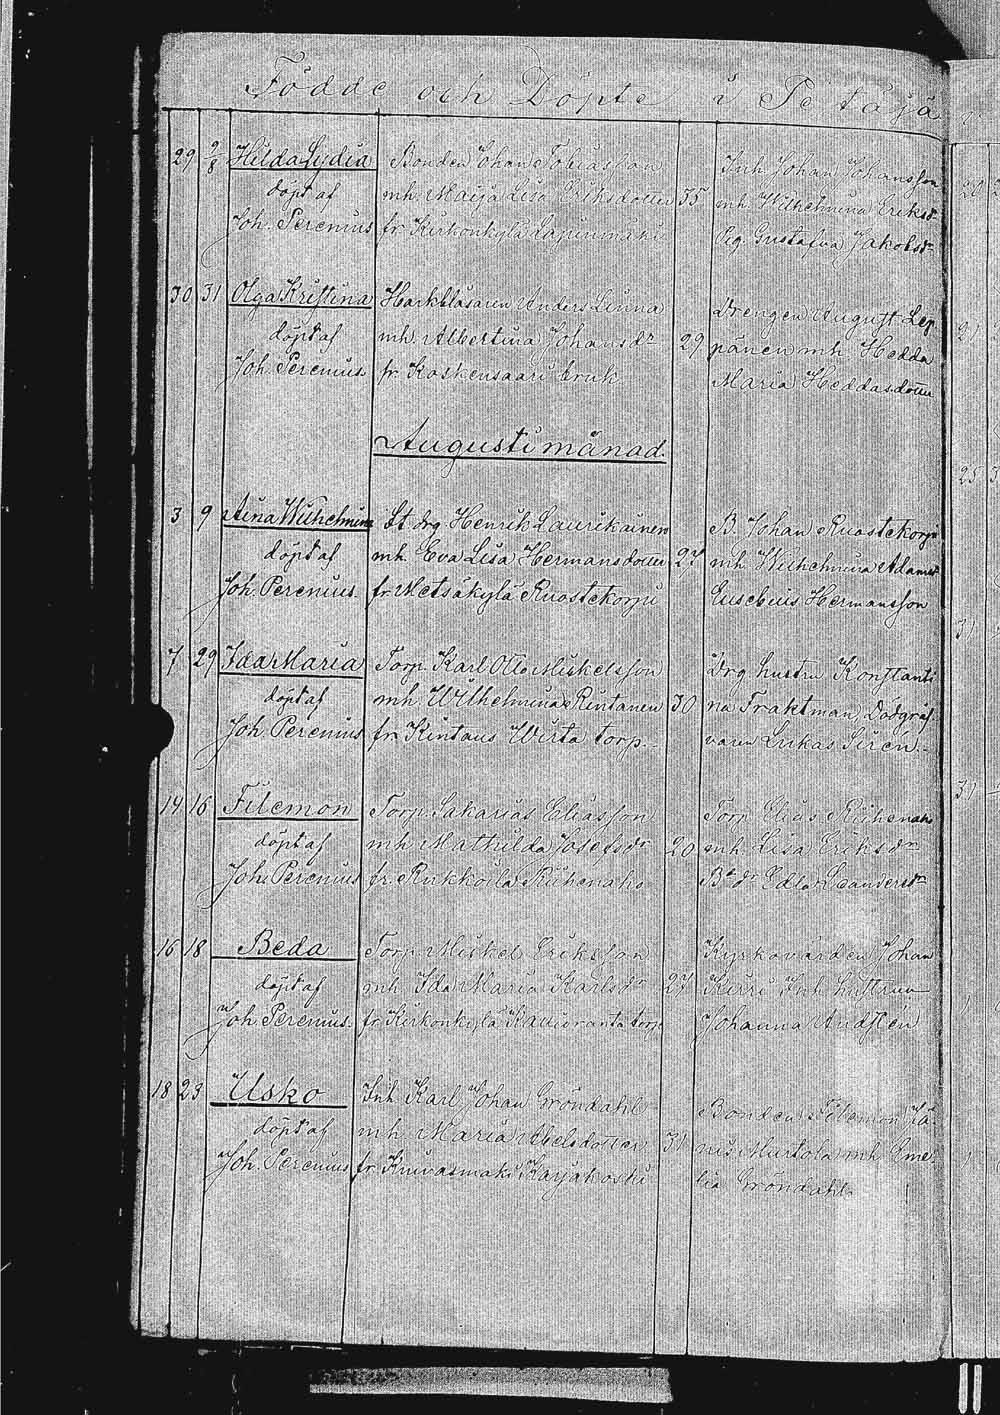 Födde och Döpte i Petäjä
29 2/8 Hilda Lydia Bonden Johan Tobiasson Inh Johan Johansson
döpt af mh. Maija Lisa Eriksdotter 35 mh Wilhelmina Eriksdr
Joh. Perenius fr Kirkonkylä Lapinmäki Pig. Gustafva Jakobsdr
30 31 Olga Kristina Harkblåsaren Anders Linna Drengen August Lep
döpt af mh. Albertina Johansdr 29 pänen mh Hedda
Joh. Perenius fr Koskensaari bruk Maria Heddasdotter
Augusti månad.
3 9 Aina Wilhelmina St drg Henrik Laurikainen B. Johan Ruostekorpi
döpt af mh. Eva Lisa Hermansdotter 27 mh Wilhelmina Adamsdr
Joh. Perenius fr Metsäkylä Ruostekorpi Eusebius Hermansson
7 29 Ida Maria Torp. Karl Otto Mickelsson Drg hustru Konstanti
döpt af mh Wilhelmina Rintanen 30 na Traktman, Dödgräf
Joh. Perenius fr Kintaus Wirta torp. varen Lukas Sirén
14 16 Filemon Torp. Sakarias Eliasson Torp Elias Riihenaho
döpt af mh Mathilda Josefsdr 20 mh Lisa Eriksdr
Joh. Perenius fr. Kukkoila Riihenaho Bdr Edla Leandersdr
16 18 Beda Torp. Mickel Eriksson Kyrkovärden Johan
döpt af mh Ida Maria Karlsdr 27 Kirri Inh hustrun
Joh Perenius. fr Kirkonkylä torp Johanna Andstén
18 23 Usko Inh Karl Johan Gröndahl Bonden Filemon Jä
döpt af mh Maria Abelsdotter 31 nis Murtola mh Eme-
Joh. Perenius fr Kuivasmäki Karjakoski lia Gröndahl